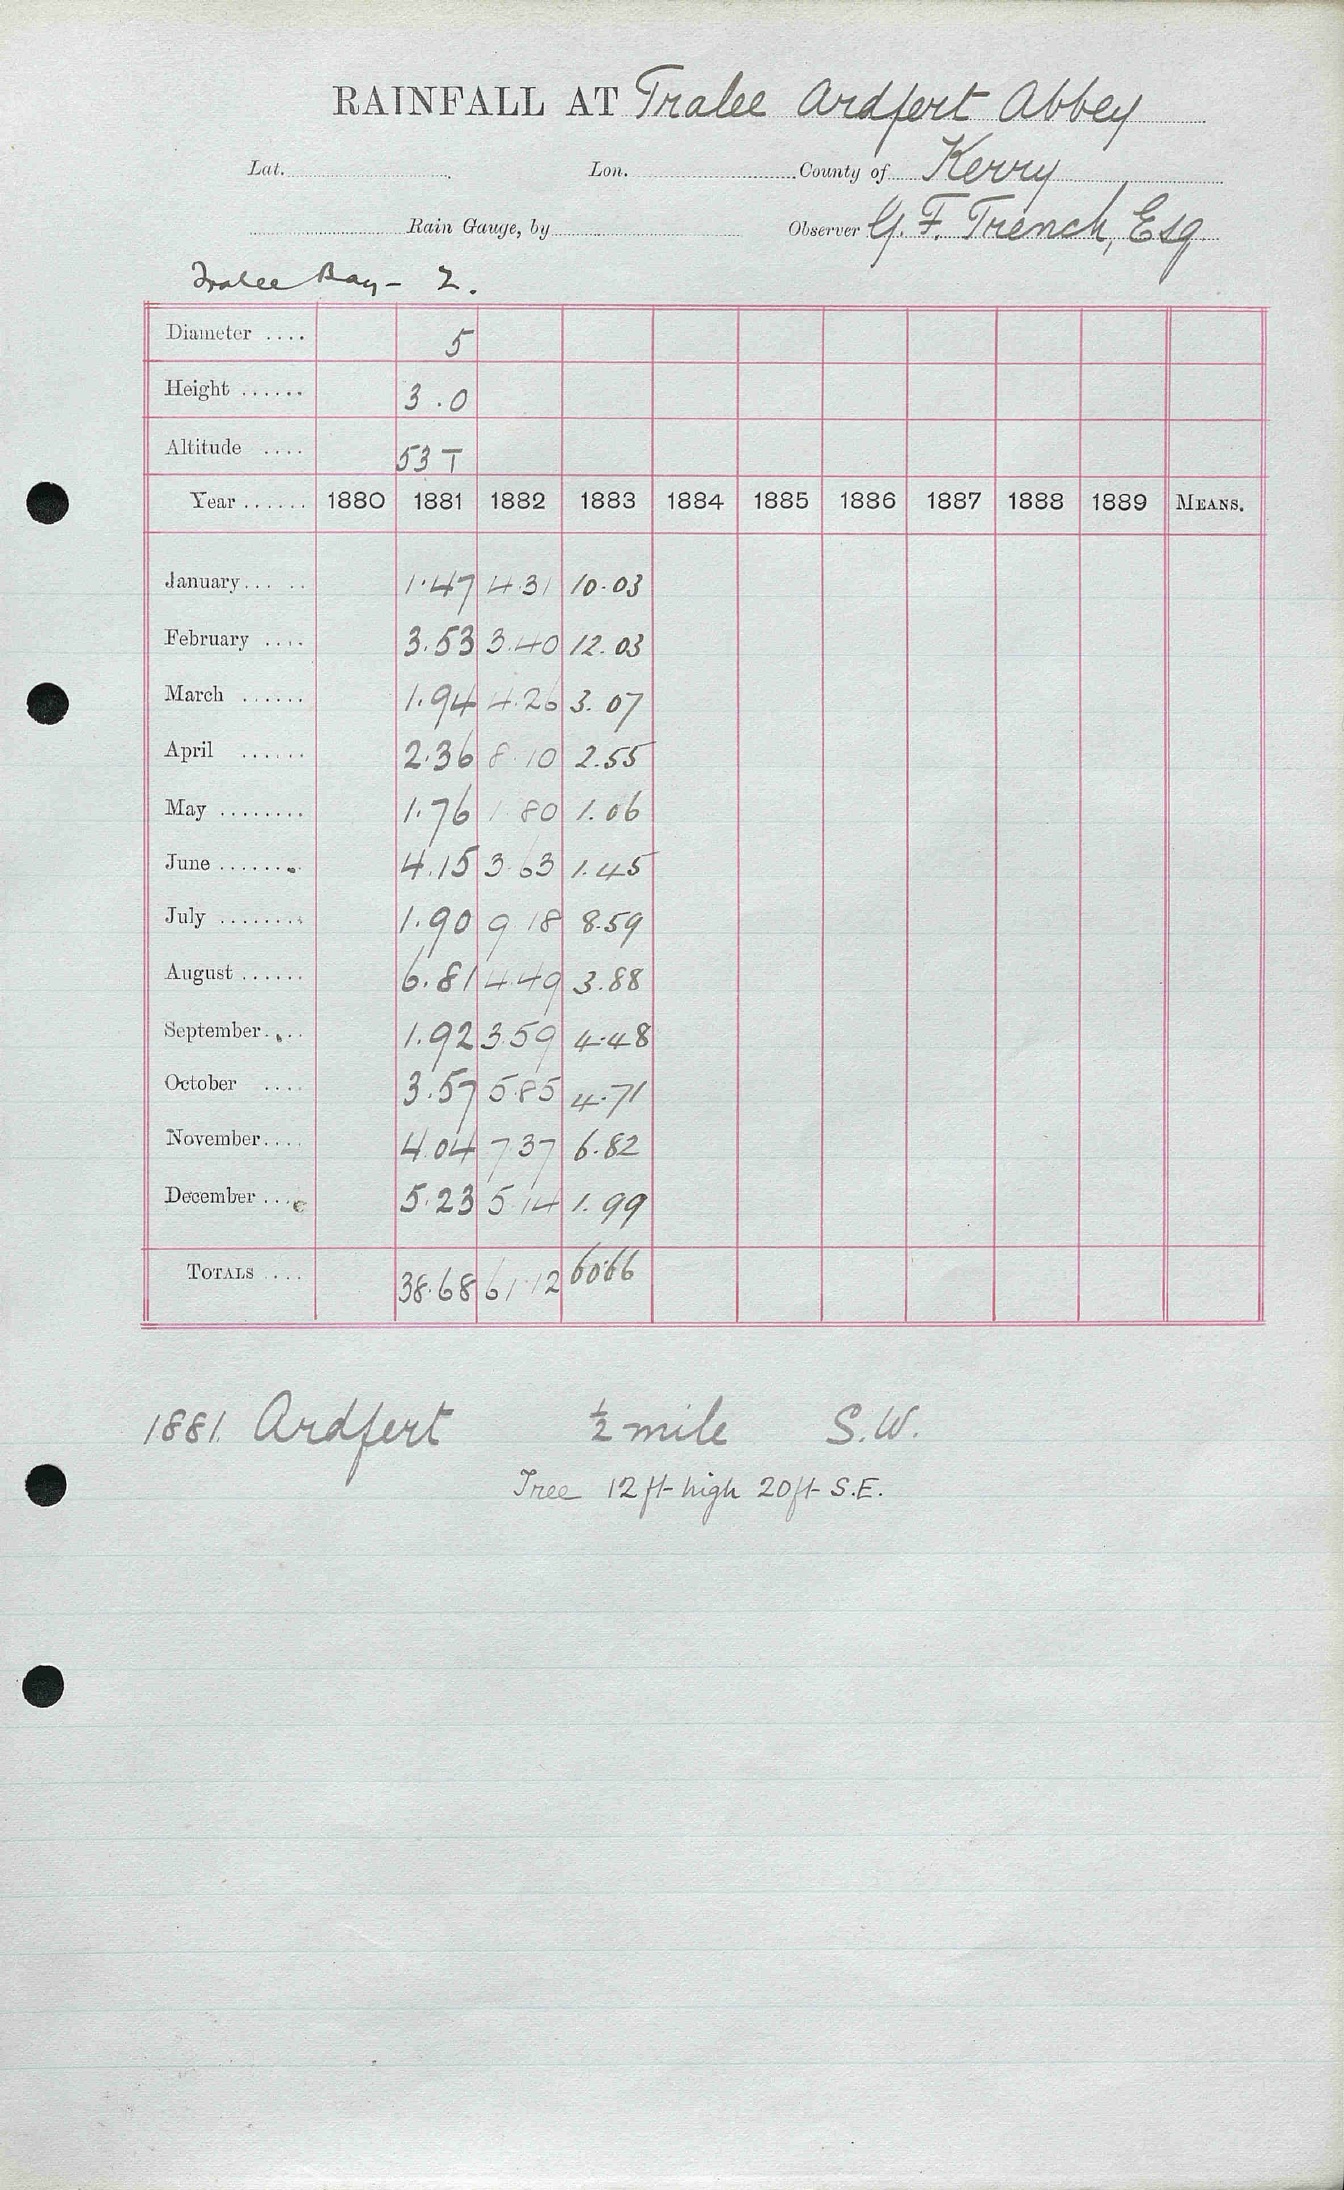 RAINFALL AT Tralee Ardfert Abbey
Lat. Lon. County of Kerry
Rain Gauge, by Observer G. F. Trench, Esq
Tralee Bay - 2.
Diameter .... 5
Height ...... 3.0
Altitude .... 53 T
Year ...... 1880 1881 1882 1883 1884 1885 1886 1887 1888 1889 MEANS.
January... .. 1.47 4.31 10.03
February .... 3.53 3.40 12.03
March ...... 1.94 4.26 3.07
April ...... 2.36 8.10 2.55
May ........ 1.76 1.80 1.06
June ........ 4.15 3.63 1.45
July ........ 1.90 9.18 8.59
August ...... 6.81 4.49 3.88
September.... 1.92 3.59 4.48
October .... 3.57 5.85 4.71
November.... 4.04 7.37 6.82
December .... 5.23 5.14 1.99
TOTALS .... 38.68 61.12 60.66
1881. Ardfert ½ mile S.W.
Tree 12 ft high 20 ft S.E.